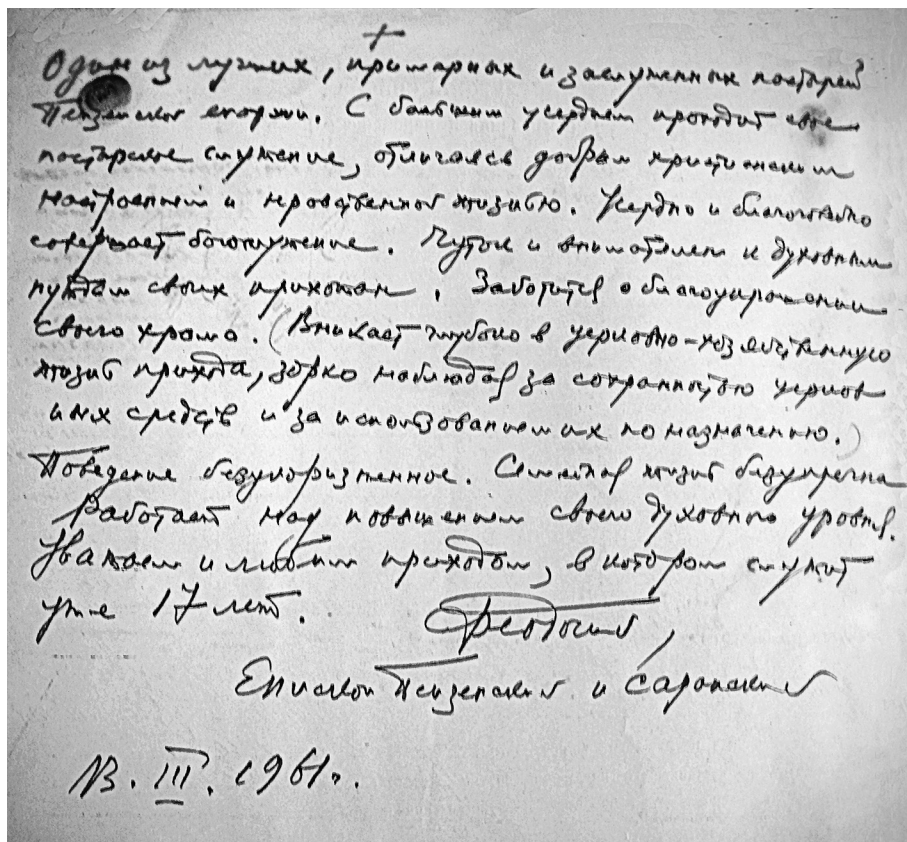 Один из лучших, примерных и заслуженных пастырей
Пензенской епархии. С большим усердием проходит свое
пастырское служение, отличаясь добрым христианским
настроением и нравственной жизнью. Усердно и благоговейно
совершает богослужение. Чуток и внимателен к духовным
нуждам своих прихожан. Заботится о благоукрашении
своего храма. (Вникает глубоко в церковно-хозяйственную
жизнь прихода, зорко наблюдая за сохранностью церков
ных средств и за использованием их по назначению.)
Поведение безукоризненное. Семейная жизнь безупречна
Работает над повышением своего духовного уровня.
Уважаем и любим приходом, в котором служит
уже 17 лет. Феодосий,
Епископ Пензенский и Саранский
13. III. 1961г.